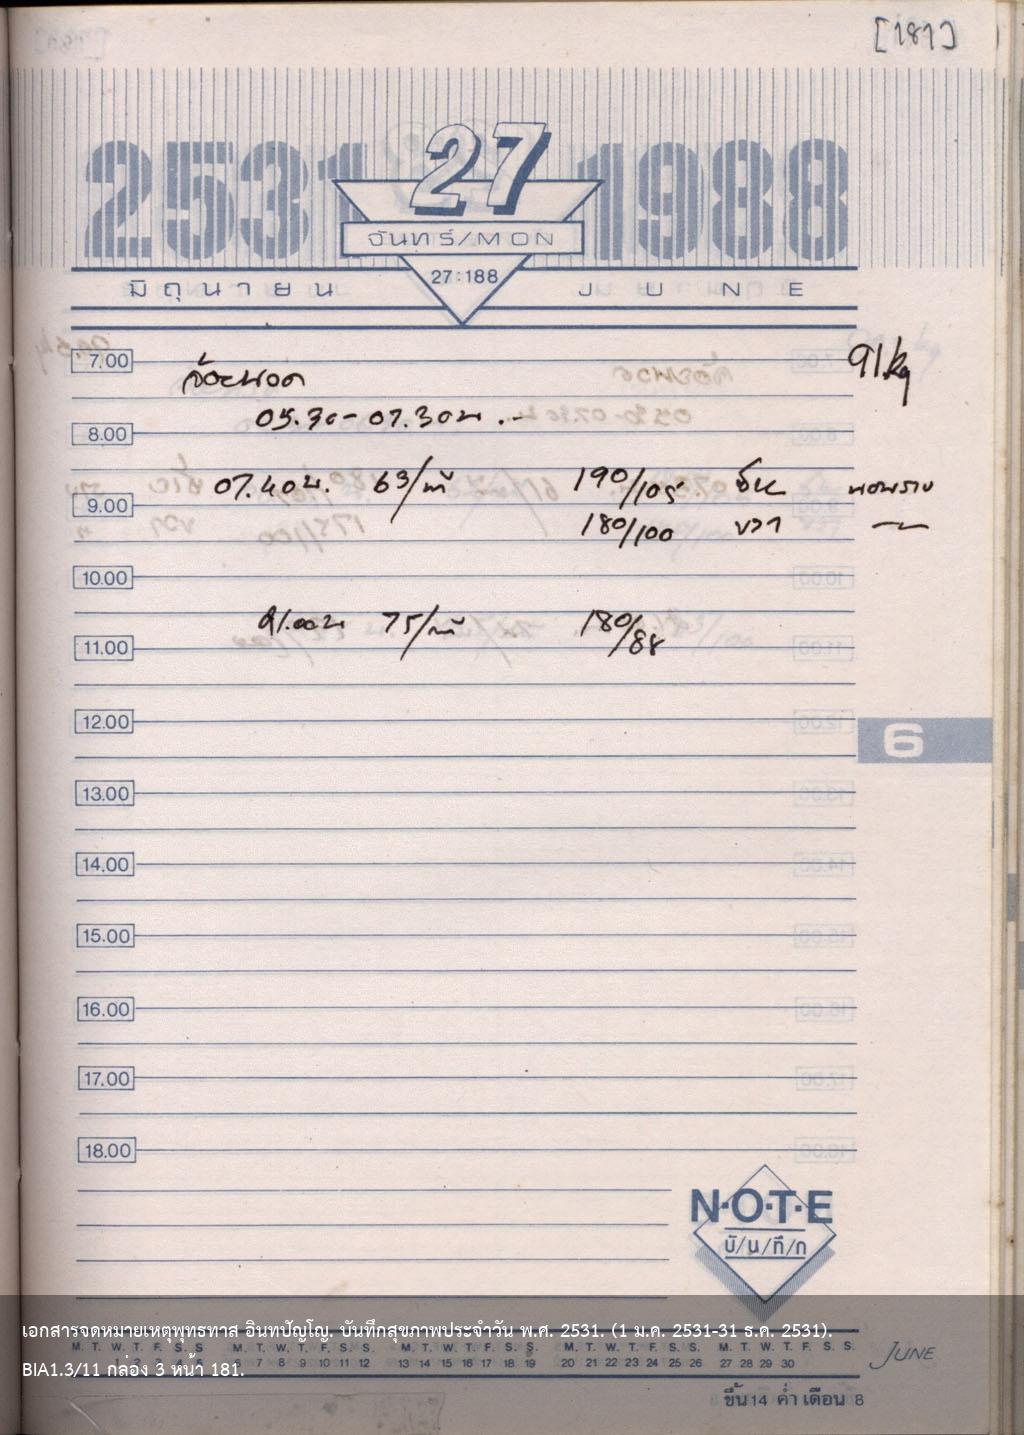 [181]
2531 27 1988
จันทร์/MON
27:188
มิถุนายน JUNE
7.00
91 kg
05.30-07.30 น.-
8.00
07.40 น. 63/ที 190/105 ซ้าย นอนราบ
9.00
180/100 ขวา
10.00
21.00 น 75/ที 180/88
11.00
12.00
6
13.00
14.00
15.00
16.00
17.00
18.00
N·O·T·E
บั/น/ทึ/ก
เอกสารจดหมายเหตุพุทธทาส อินทปัญโญ. บันทึกสุขภาพประจำวัน พ.ศ. 2531. (1 ม.ค. 2531-31 ธ.ค. 2531).
M. T. W. T. F. S. S M. T. W. T. F. S. S. M. T. W. T. F. S. S. M. T. W. T. F. S. S. M. T. W. T. F. S. S.
1 2 3 4 5 6 7 8 9 10 11 12 13 14 15 16 17 18 19 20 21 22 23 24 25 26 27 28 29 30
JUNE
BIA1.3/11 กล่อง 3 หน้า 181.
ขึ้น 14 ค่ำ เดือน 8